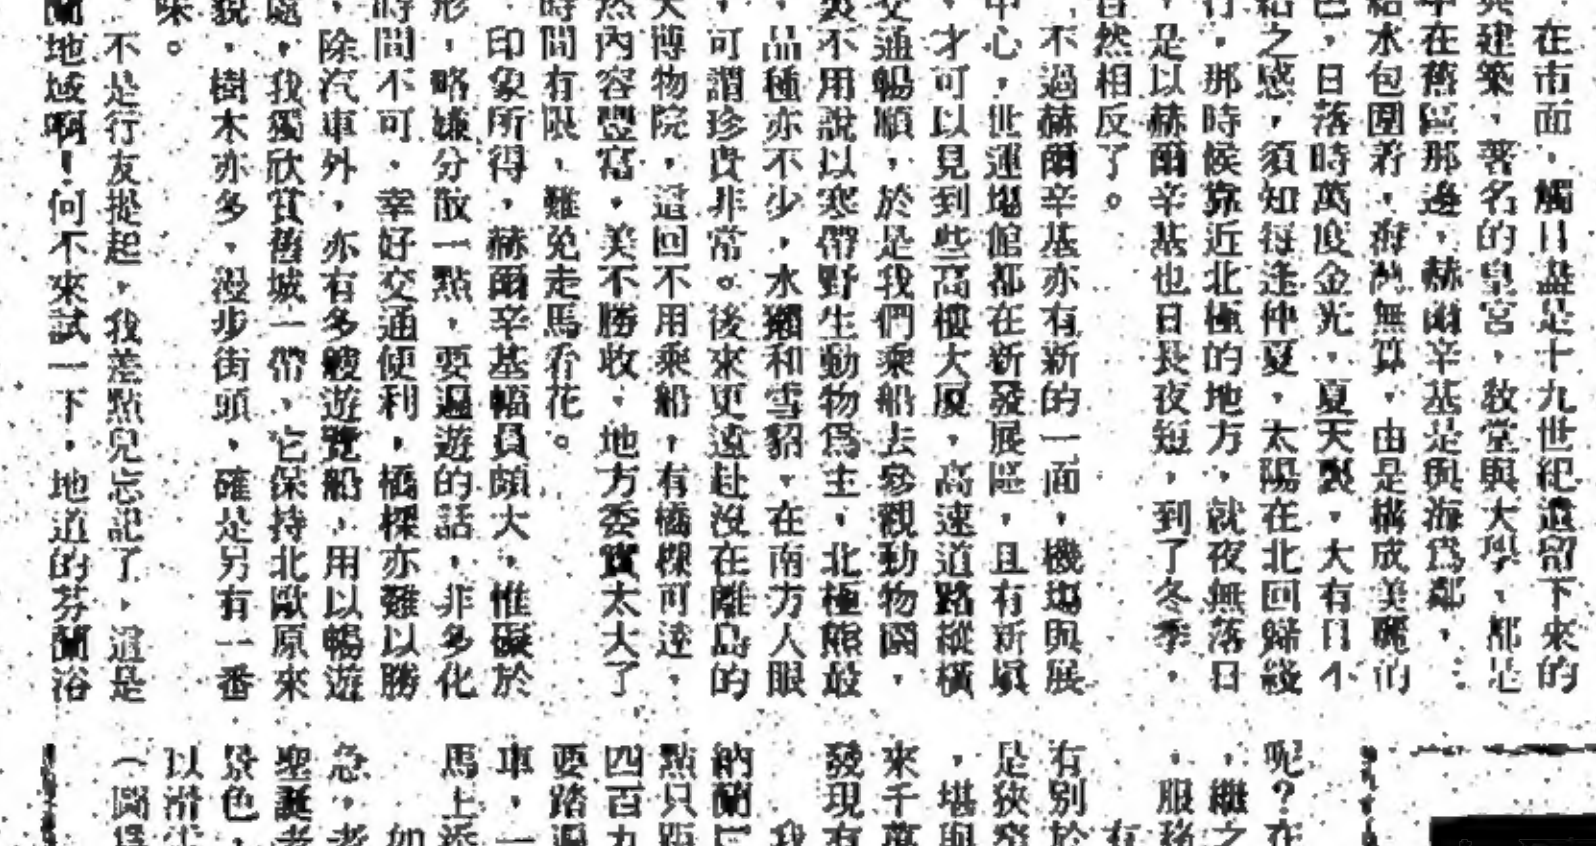 在市面，觸目盡是十九世紀遺留下來的
建築，著名的皇宮，教堂與大學，都是
在舊區那邊，赫爾辛基是與海為鄰，
水包圍着，海灣無算，由是構成美麗的
色，日落時萬度金光，夏天裏，大有日不
之感，須知每逢仲夏，太陽在北回歸綫
行，那時候靠近北極的地方，就夜無落日
，是以赫爾辛基也日長夜短，到了冬季，
自然相反了。
不過赫爾辛基亦有新的一面，機場與展
中心，世運場館都在新發展區，且有新填
，才可以見到些高樓大廈，高速道路縱橫
交通暢順，於是我們乘船去參觀動物園，
裏不用說以寒帶野生動物為主，北極熊最
，品種亦不少，水獺和雪貂，在南方人眼
，可謂珍貴非常。後來更遠赴沒在離島的
大博物院，這回不用乘船，有橋樑可達，
然內容豐富，美不勝收，地方委實太大了
時間有限，難免走馬看花。
印象所得，赫爾辛基幅員頗大，惟礙於
形，略嫌分散一點，要遍遊的話，非多化
時間不可，幸好交通便利，橋樑亦難以勝
，除汽車外，亦有多艘遊覽船，用以暢遊
處，我獨欣賞舊城一帶，它保持北歐原來
貌，樹木亦多，漫步街頭，確是另有一番
味。
不是行友提起，我差點兒忘記了，這是
蘭地域啊！何不來試一下，地道的芬蘭浴
呢？在
，繼之
，服務
有
有別於
是狹窄
，堪與
來千萬
發現有
我
納蘭
點只距
四百九
要踏遍
車，一
馬上添
如
急，老
聖誕老
景色，
以滑